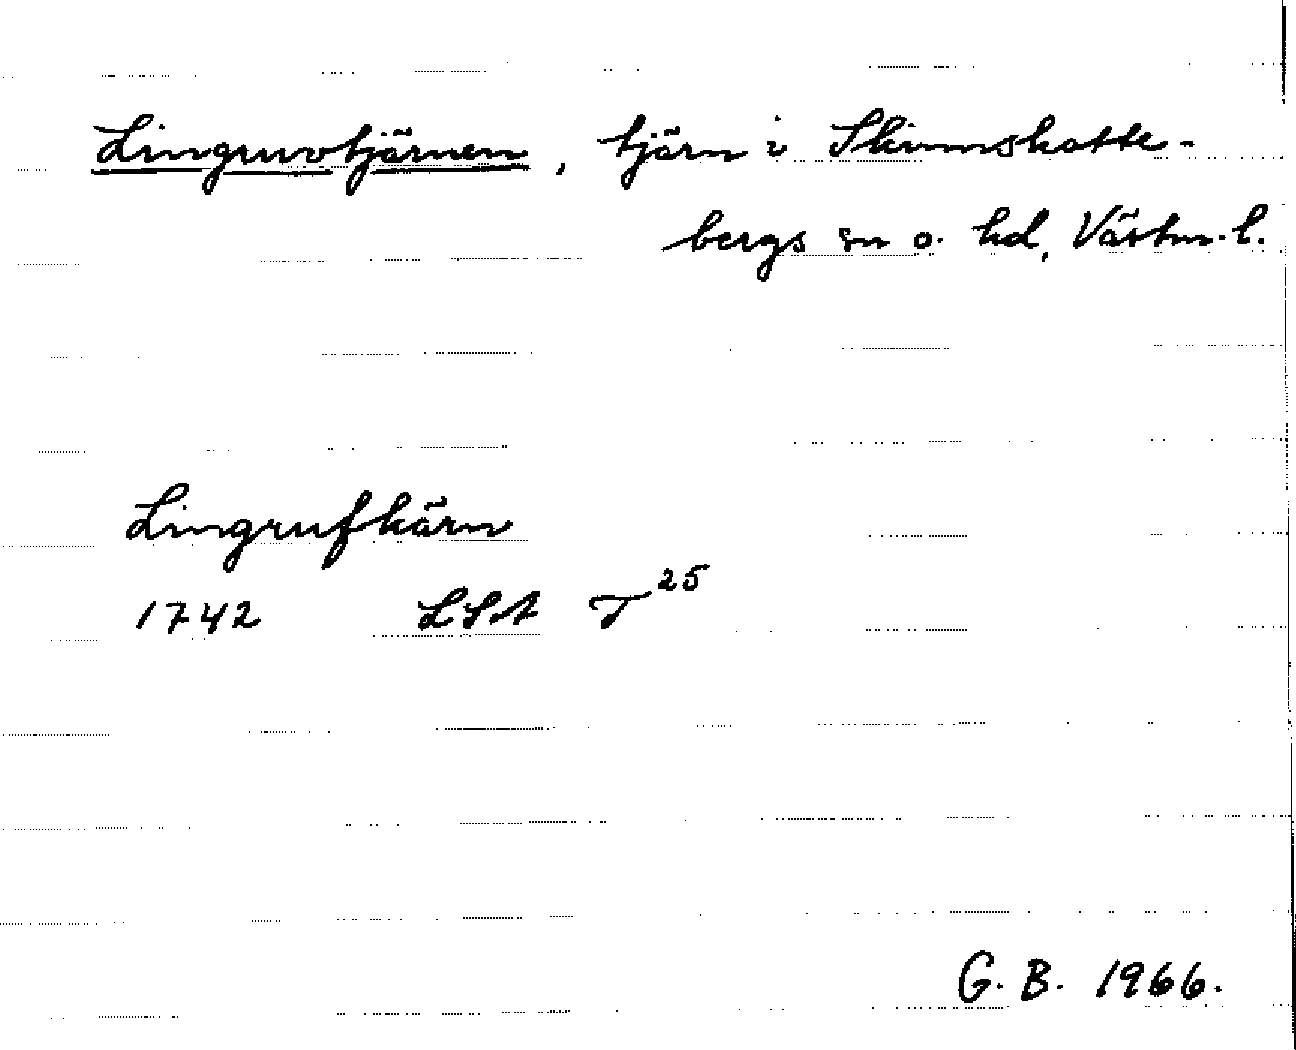 Lingruvotjärnen, tjärn i Skinnskatte-
bergs sn o. hd, Västm. l.
Lingrufkärn
1742 LSA T25
G. B. 1966.